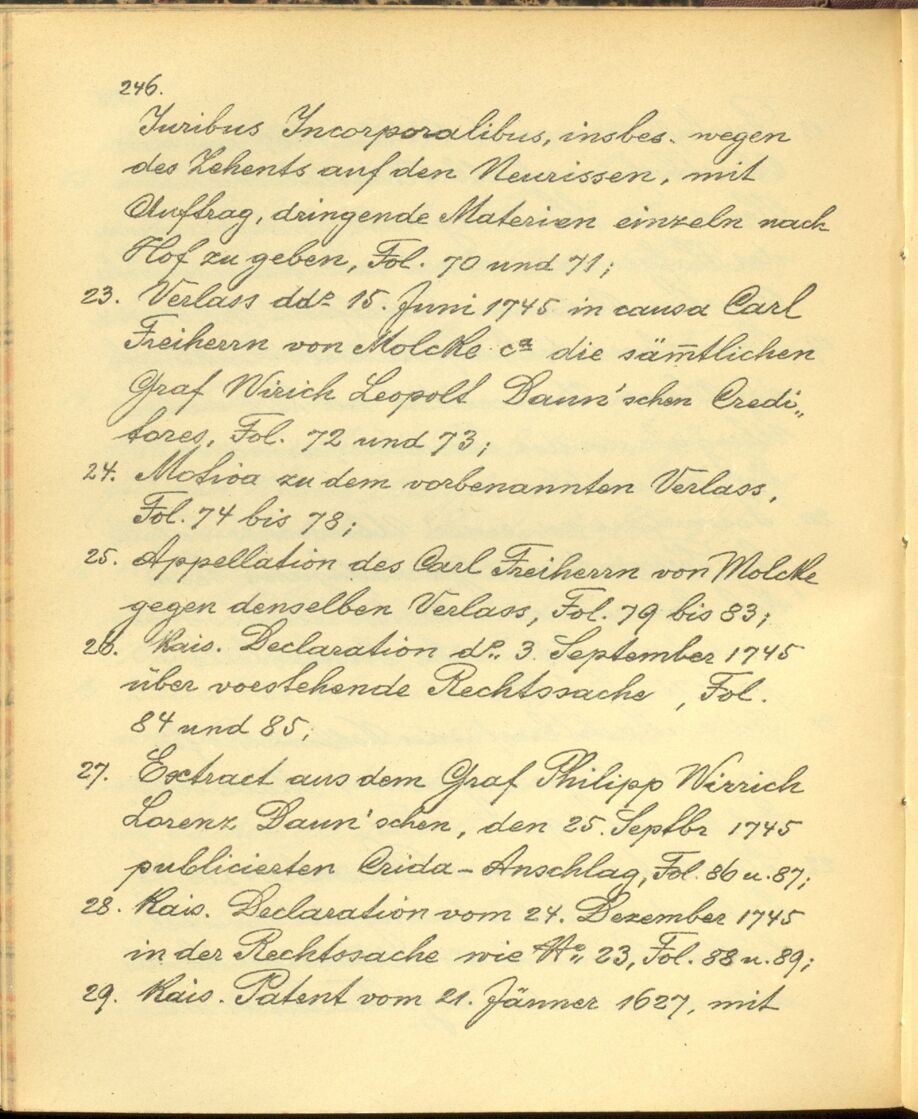 246.
Juribus Incorporalibus, insbes. wegen
des Zehents auf den Neurissen, mit
Auftrag, dringende Materien einzeln nach
Hof zu geben, Fol. 70 und 71;
23. Verlass ddº 15. Juni 1745 in causa Carl
Freiherrn von Molcke cª die säm̄tlichen
Graf Wirich Leopolt Daun'schen Credi„
tores, Fol. 72 und 73;
24. Motiva zu dem vorbenannten Verlass,
Fol. 74 bis 78;
25. Appellation des Carl Freiherrn von Molcke
gegen denselben Verlass, Fol. 79 bis 83;
26. Kais. Declaration dº. 3. September 1745
über vorstehende Rechtssache, Fol.
84 und 85;
27. Extract aus dem Graf Philipp Wirrich
Lorenz Daun'schen, den 25. Septbr 1745
publicierten Crida-Anschlag, Fol. 86 u. 87;
28. Kais. Declaration vom 24. Dezember 1745
in der Rechtssache wie Nº. 23, Fol. 88 u. 89;
29. Kais. Patent vom 21. Jänner 1627, mit